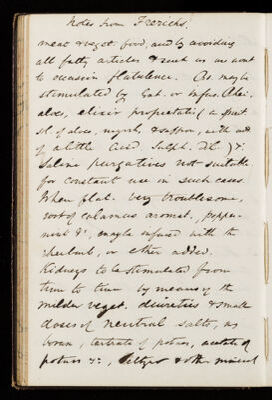 Notes from Frerichs.
meat & veget. food, and by avoiding
all fatty articles & such as are wont
to occasion flatulence. Bs. may be
stimulated by Ext. or Infus. Rhei.
aloes, elixir proprietatis (a spirit
sol. of aloes, myrrh, & saffron, with add
of a little Acid. Sulph. Dil.) &c.
Saline purgatives not suitable
for constant use in such cases.
When flat. very troublesome,
root of calamus aromat. pepper-
mint &c, may be infused with the
rhubarb, or ether added.
Kidneys to be stimulated from
time to time by means of the
milder veget. diuretics & small
doses of neutral salts, as
borax, tartrate of potass, acetate of
potass &c, Seltzer & other mineral